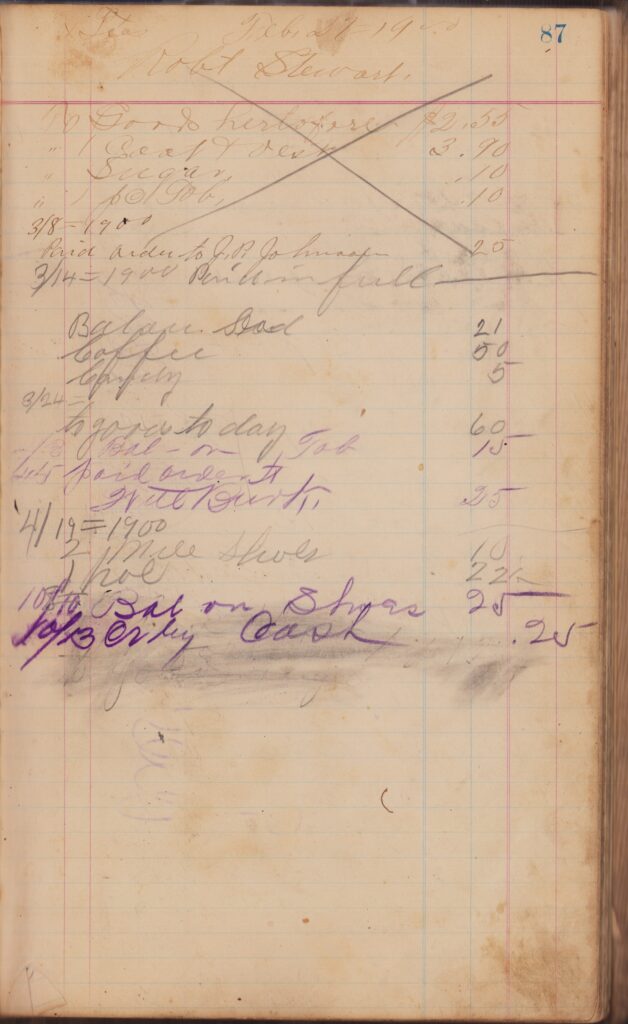 87
Feb. 27 1900
Robt Stewart.
To Goods heretofore $2.55
" 1 Coat & vest 3.90
" Sugar, .10
" 1 pc Tob, .10
3/8 = 1900
Paid order to J. R. Johnson 25
3/14 = 1900 Paid in full
Balan. 21
Coffee 50
Candy 5
3/24 =
to goods to day 60
Bal - on Tob 15
4/5 paid order to
Will 25
4/19 = 1900
2 Mule Shoes 10
1 22
10/10 Bal on Shoes 25
10/13 By Cash .25